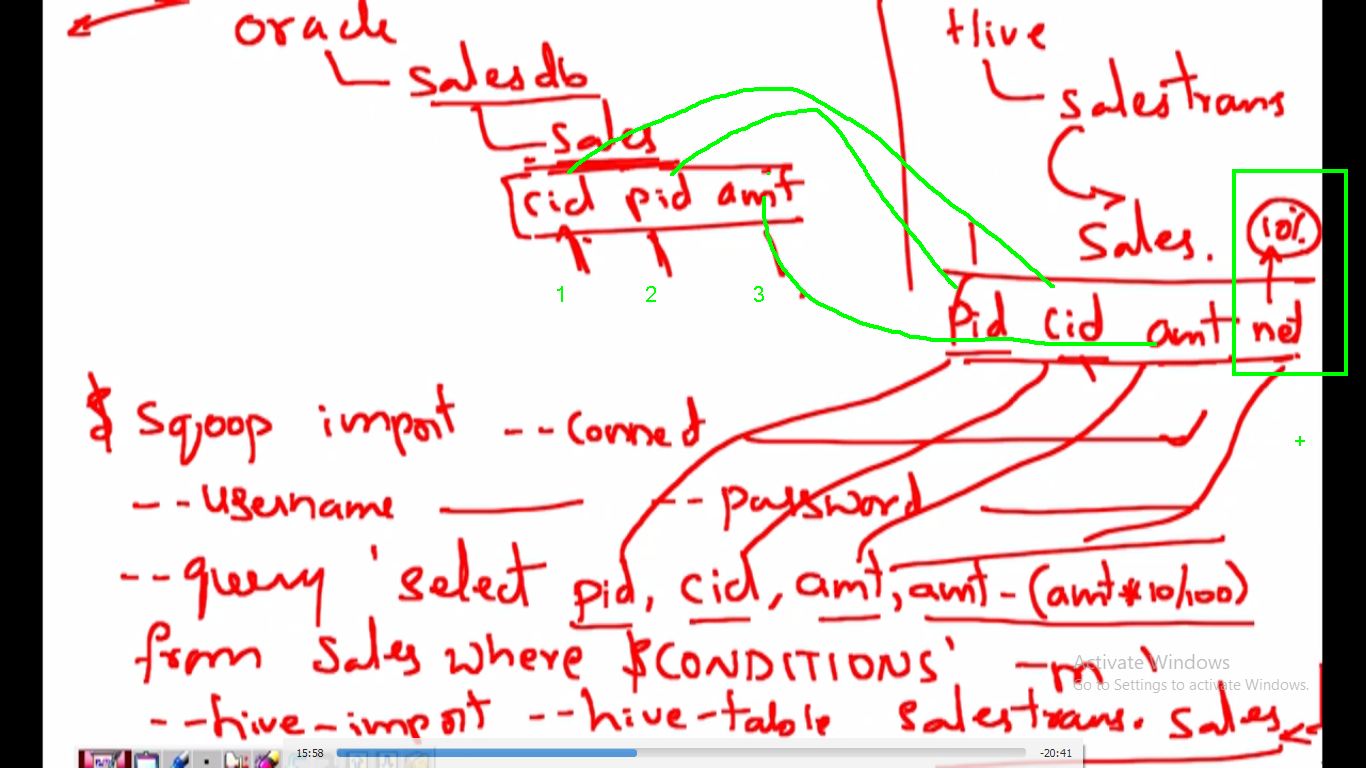 oracle
Hive
salesdb
salestrans
sales
cid pid amt
10%
Sales.
1 2 3
pid cid amt net
$ Sqoop import --connect
--username --password
--query 'select pid, cid, amt, amt-(amt*10/100)
from sales where $CONDITIONS' -m 1
--hive-import --hive-table salestrans.sales
Activate Windows
Go to Settings to activate Windows.
15:58 -20:41